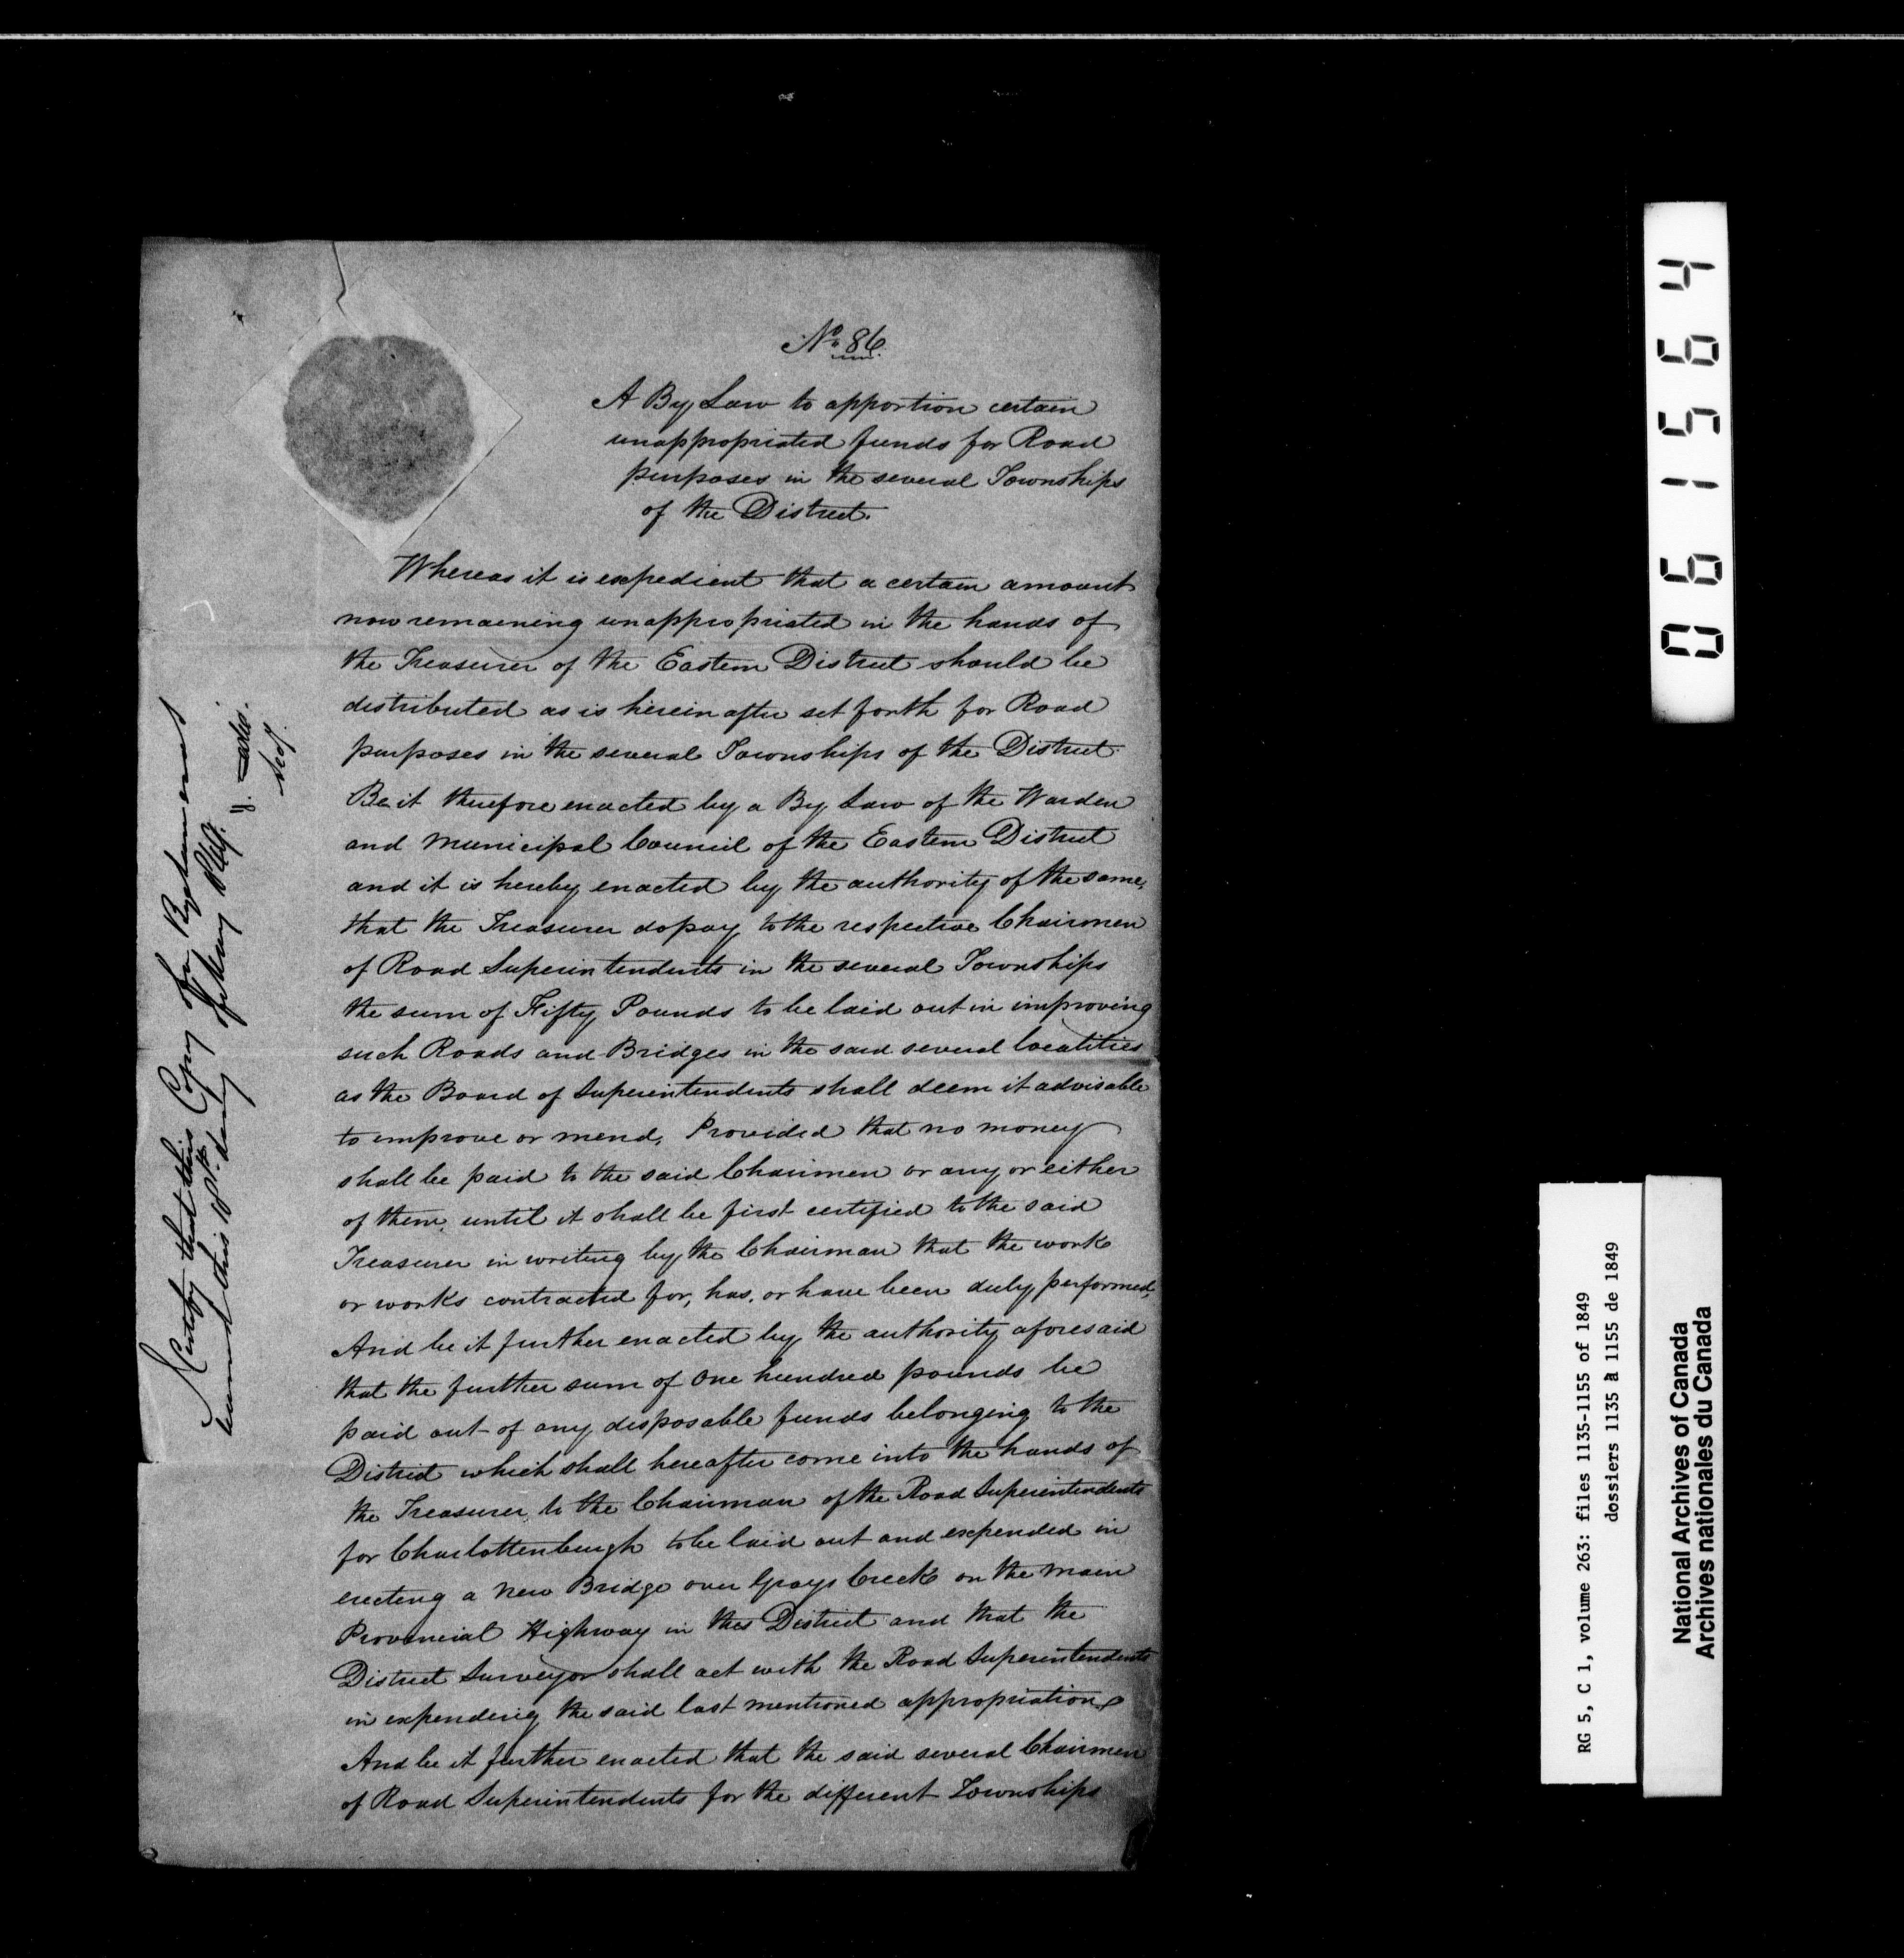 No. 86.
A By Law to apportion certain
unappropriated funds for Road
purposes in the several Townships
of the District.
Whereas it is expedient that a certain amount
now remaining unappropriated in the hands of
the Treasurer of the Eastern District should be
distributed as is herein after set forth for Road
purposes in the several Townships of the District
Be it therefore enacted by a By Law of the Warden
and Municipal Council of the Eastern District
and it is hereby enacted by the authority of the same,
that the Treasurer do pay to the respective Chairmen
of Road Superintendents in the several Townships
the sum of Fifty Pounds to be laid out in improving
such Roads and Bridges in the said several localities
as the Board of Superintendents shall deem it advisable
to improve or mend, Provided that no money
shall be paid to the said Chairmen or any or either
of them, until it shall be first certified to the said
Treasurer in writing by the Chairman that the work
or works contracted for, has, or have been duly performed,
And be it further enacted by the authority aforesaid
that the further sum of One hundred pounds be
paid out of any disposable funds belonging to the
District which shall hereafter come into the hands of
the Treasurer, to the Chairman of the Road Superintendents
for Charlottenburgh to be laid out and expended in
erecting a new Bridge over Grays Creek on the main
Provincial Highway in this District and that the
District Surveyor shall act with the Road Superintendents
in expending the said last mentioned appropriation,
And be it further enacted that the said several Chairmen
of Road Superintendents for the different Townships
I certify that this Copy
this 18th day
061564
RG 5, C 1, volume 263: files 1135-1155 of 1849
dossiers 1135 à 1155 de 1849
National Archives of Canada
Archives nationales du Canada